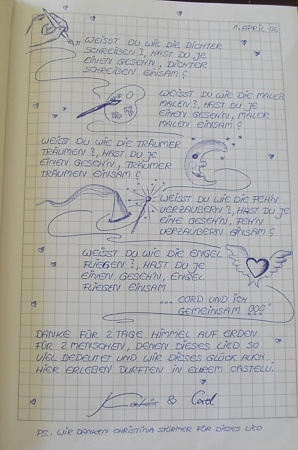 1. APRIL 06
WEISST DU WIE DIE DICHTER
SCHREIBEN?, HAST DU JE
EINEN GESEH'N, DICHTER
SCHREIBEN EINSAM?
WEISST DU WIE DIE MALER
MALEN?, HAST DU JE
EINEN GESEH'N, MALER
MALEN EINSAM?
WEISST DU WIE DIE TRÄUMER
TRÄUMEN?, HAST DU JE
EINEN GESEH'N, TRÄUMER
TRÄUMEN EINSAM?
WEISST DU WIE DIE FEH'N
VERZAUBERN?, HAST DU JE
EINE GESEH'N, FEH'N
VERZAUBERN EINSAM?
WEISST DU WIE DIE ENGEL
FLIEGEN?, HAST DU JE
EINEN GESEH'N, ENGEL
FLIEGEN EINSAM
... CORD UND ICH
GEMEINSAM ???
DANKE FÜR 2 TAGE HIMMEL AUF ERDEN
FÜR 2 MENSCHEN, DENEN DIESES LIED SO
VIEL BEDEUTET UND WIR DIESES GLÜCK AUCH
HIER ERLEBEN DURFTEN IN EUREM CASTELLI.
& Cord
PS: WIR DANKEN CHRISTINA STÜRMER FÜR DIESES LIED